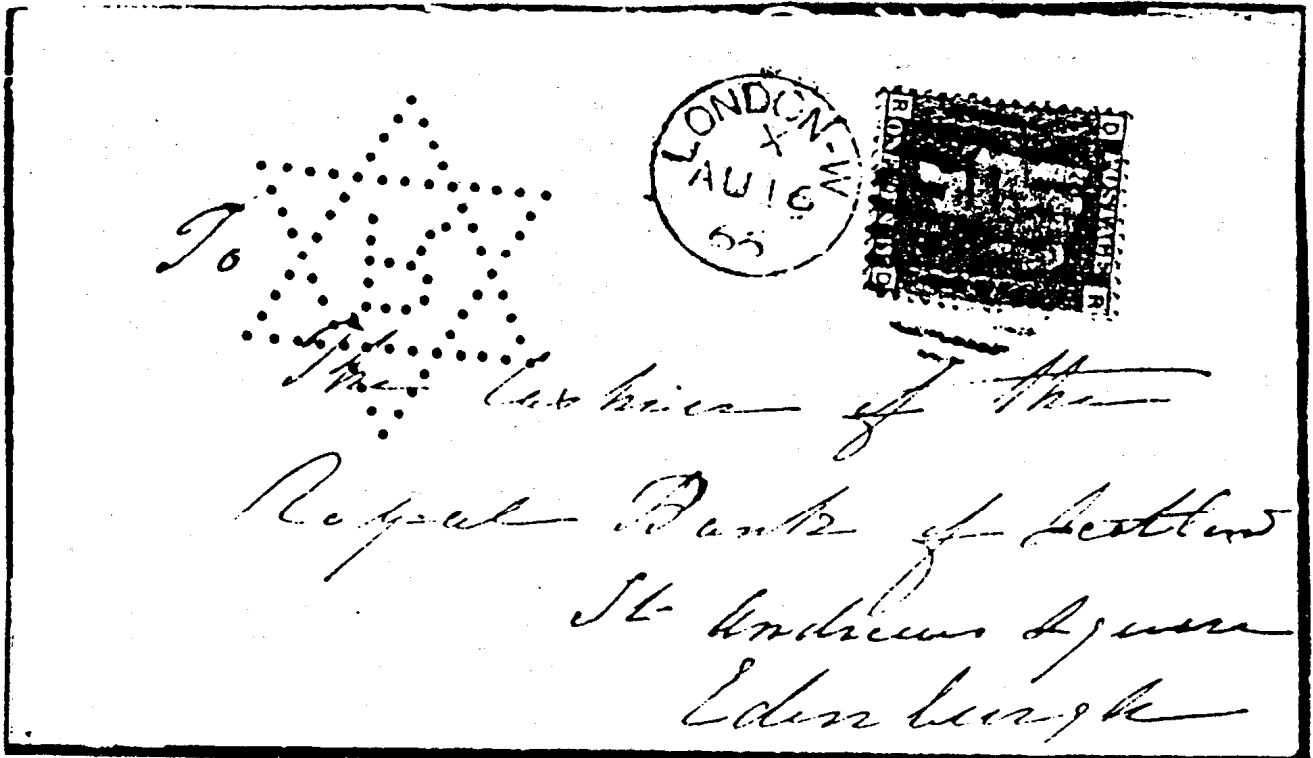 LONDON-W
X
AU 16
65
D POSTAGE R
R ONE PENNY D
To
The Cashier of the
Royal Bank of Scotland
St Andrews Square
Edenburgh